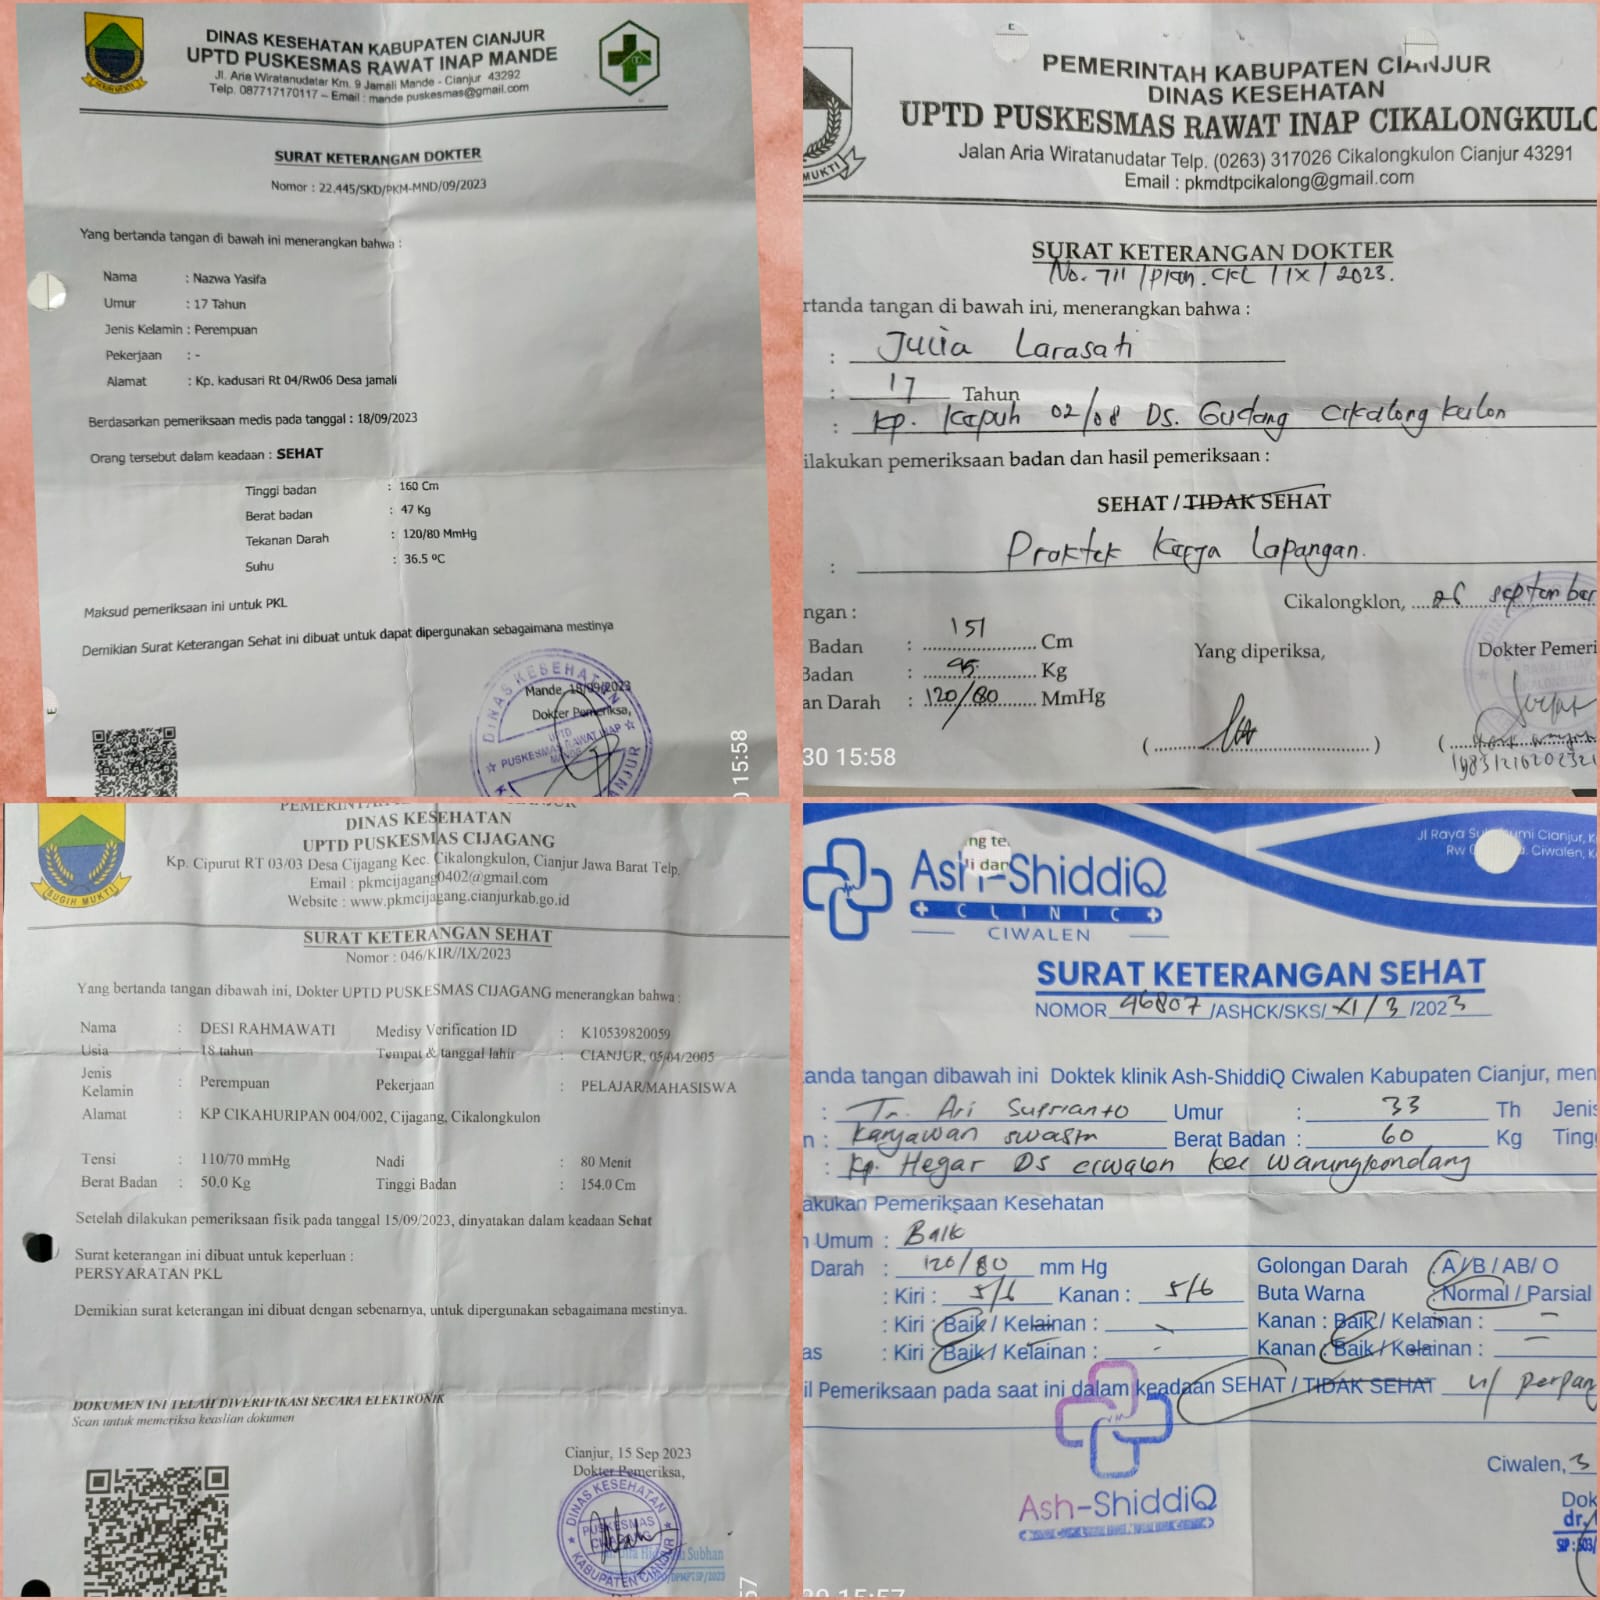 DINAS KESEHATAN KABUPATEN CIANJUR
UPTD PUSKESMAS RAWAT INAP MANDE
Jl. Aria Wiratanudatar Km. 9 Jamali Mande - Cianjur 43292
Telp. 087717170117 – Email : mande.puskesmas@gmail.com
SURAT KETERANGAN DOKTER
Nomor : 22.445/SKD/PKM-MND/09/2023
Yang bertanda tangan di bawah ini menerangkan bahwa :
Nama : Nazwa Yasifa
Umur : 17 Tahun
Jenis Kelamin : Perempuan
Pekerjaan : -
Alamat : Kp. kadusari Rt 04/Rw06 Desa jamali
Berdasarkan pemeriksaan medis pada tanggal : 18/09/2023
Orang tersebut dalam keadaan : SEHAT
Tinggi badan : 160 Cm
Berat badan : 47 Kg
Tekanan Darah : 120/80 MmHg
Suhu : 36.5 ºC
Maksud pemeriksaan ini untuk PKL
Demikian Surat Keterangan Sehat ini dibuat untuk dapat dipergunakan sebagaimana mestinya
Mande, 18/09/2023
Dokter Pemeriksa,
DINAS KESEHATAN
UPTD
PUSKESMAS RAWAT INAP
MANDE
15:58
PEMERINTAH KABUPATEN CIANJUR
DINAS KESEHATAN
UPTD PUSKESMAS RAWAT INAP CIKALONGKULO
Jalan Aria Wiratanudatar Telp. (0263) 317026 Cikalongkulon Cianjur 43291
Email : pkmdtpcikalong@gmail.com
MUKTI
SURAT KETERANGAN DOKTER
No. 711 /pkm. CKL / IX / 2023.
rtanda tangan di bawah ini, menerangkan bahwa :
: Julia Larasati
: 17 Tahun
: Kp. Kapuh 02/08 Ds. Gudang Cikalong kulon
ilakukan pemeriksaan badan dan hasil pemeriksaan :
SEHAT / TIDAK SEHAT
: Praktek Kerja Lapangan.
Cikalongklon, 26 september
ngan :
Badan : 151 Cm
Badan : 45 Kg
an Darah : 120/80 MmHg
Yang diperiksa,
Dokter Pemeri
30 15:58
PEMERINTAH KABUPATEN CIANJUR
DINAS KESEHATAN
UPTD PUSKESMAS CIJAGANG
Kp. Cipurut RT 03/03 Desa Cijagang Kec. Cikalongkulon, Cianjur Jawa Barat Telp.
Email : pkmcijagang0402@gmail.com
Website : www.pkmcijagang.cianjurkab.go.id
SUGIH MUKTI
SURAT KETERANGAN SEHAT
Nomor : 046/KIR//IX/2023
Yang bertanda tangan dibawah ini, Dokter UPTD PUSKESMAS CIJAGANG menerangkan bahwa :
Nama : DESI RAHMAWATI Medisy Verification ID : K10539820059
Usia : 18 tahun Tempat & tanggal lahir : CIANJUR, 05/04/2005
Jenis Kelamin : Perempuan Pekerjaan : PELAJAR/MAHASISWA
Alamat : KP CIKAHURIPAN 004/002, Cijagang, Cikalongkulon
Tensi : 110/70 mmHg Nadi : 80 Menit
Berat Badan : 50.0 Kg Tinggi Badan : 154.0 Cm
Setelah dilakukan pemeriksaan fisik pada tanggal 15/09/2023, dinyatakan dalam keadaan Sehat
Surat keterangan ini dibuat untuk keperluan :
PERSYARATAN PKL
Demikian surat keterangan ini dibuat dengan sebenarnya, untuk dipergunakan sebagaimana mestinya.
DOKUMEN INI TELAH DIVERIFIKASI SECARA ELEKTRONIK
Scan untuk memeriksa keaslian dokumen
Cianjur, 15 Sep 2023
Dokter Pemeriksa,
DINAS KESEHATAN
PUSKESMAS
KABUPATEN CIANJUR
Subhan
/DPMPTSP/2023
57
ng te
di dan
Ash-ShiddiQ
CLINIC
CIWALEN
Jl Raya Sukabumi Cianjur, K
Ciwalen, K
SURAT KETERANGAN SEHAT
NOMOR 46807 /ASHCK/SKS/ XI / 3 /2023
anda tangan dibawah ini Doktek klinik Ash-ShiddiQ Ciwalen Kabupaten Cianjur, men
: Tn. Ari Suprianto Umur : 33 Th Jenis
n : Karyawan swasta Berat Badan : 60 Kg Tingg
: Kp. Hegar Ds ciwalen kec warungkondang
akukan Pemeriksaan Kesehatan
Umum : Baik
Darah : 120/80 mm Hg Golongan Darah : A/B / AB/ O
: Kiri : 5/6 Kanan : 5/6 Buta Warna : Normal / Parsial
: Kiri : Baik / Kelainan : - Kanan : Baik / Kelainan : -
as : Kiri : Baik / Kelainan : - Kanan : Baik / Kelainan : -
il Pemeriksaan pada saat ini dalam keadaan SEHAT / TIDAK SEHAT u/ perpan
Ash-ShiddiQ
Ciwalen, 3
Dok
dr.
SIP : 503/
30 15:57